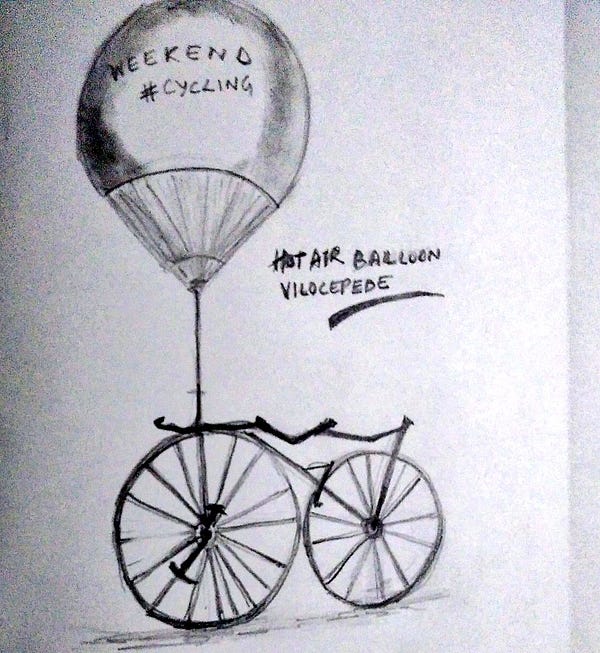 WEEKEND
#CYCLING
HOT AIR BALLOON
VILOCEPEDE